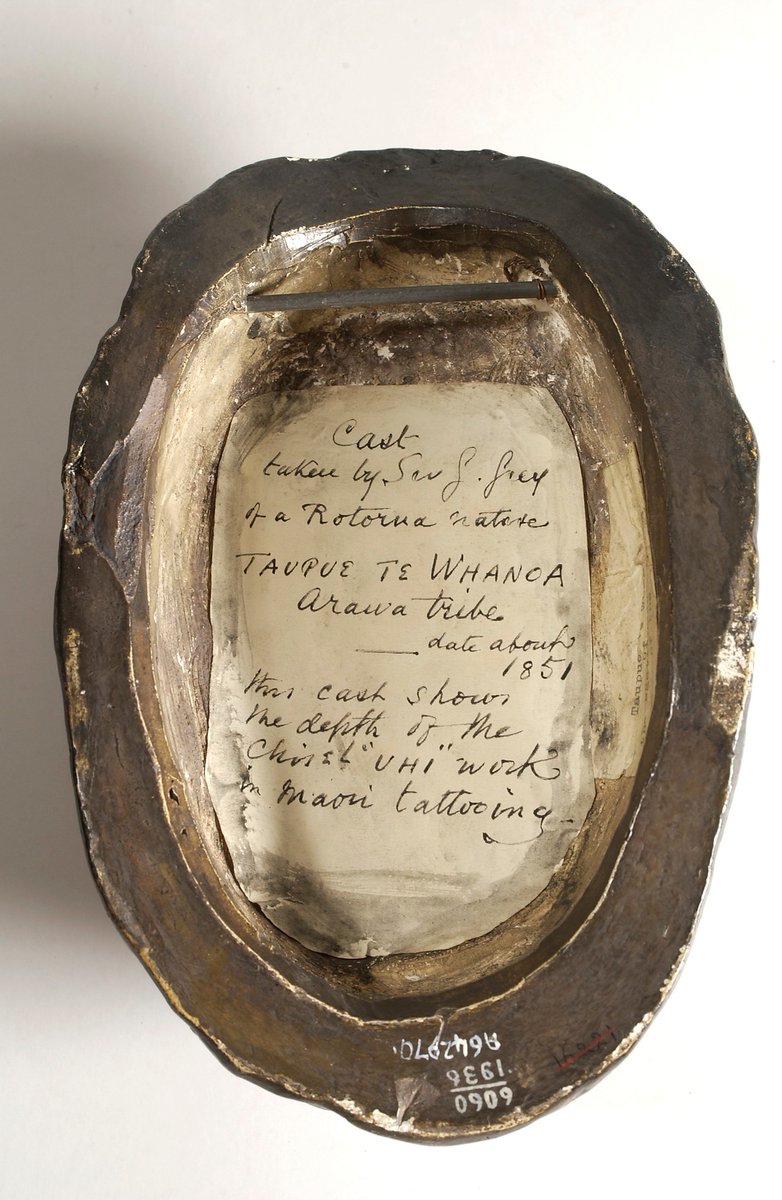 Cast
taken by Sir G. Grey
of a Rotorua native
TAUPUE TE WHANOA
Arawa tribe
date about
1851
this cast shows
the depth of the
Chisel "UHI" work
in Maori tattooing
Taupue
A642970
6060
1936